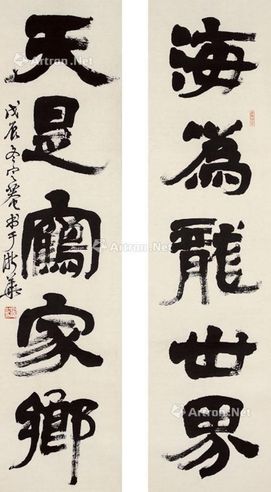 海為龍世界
天是鶴家鄉
戊辰冬
Artron.Net